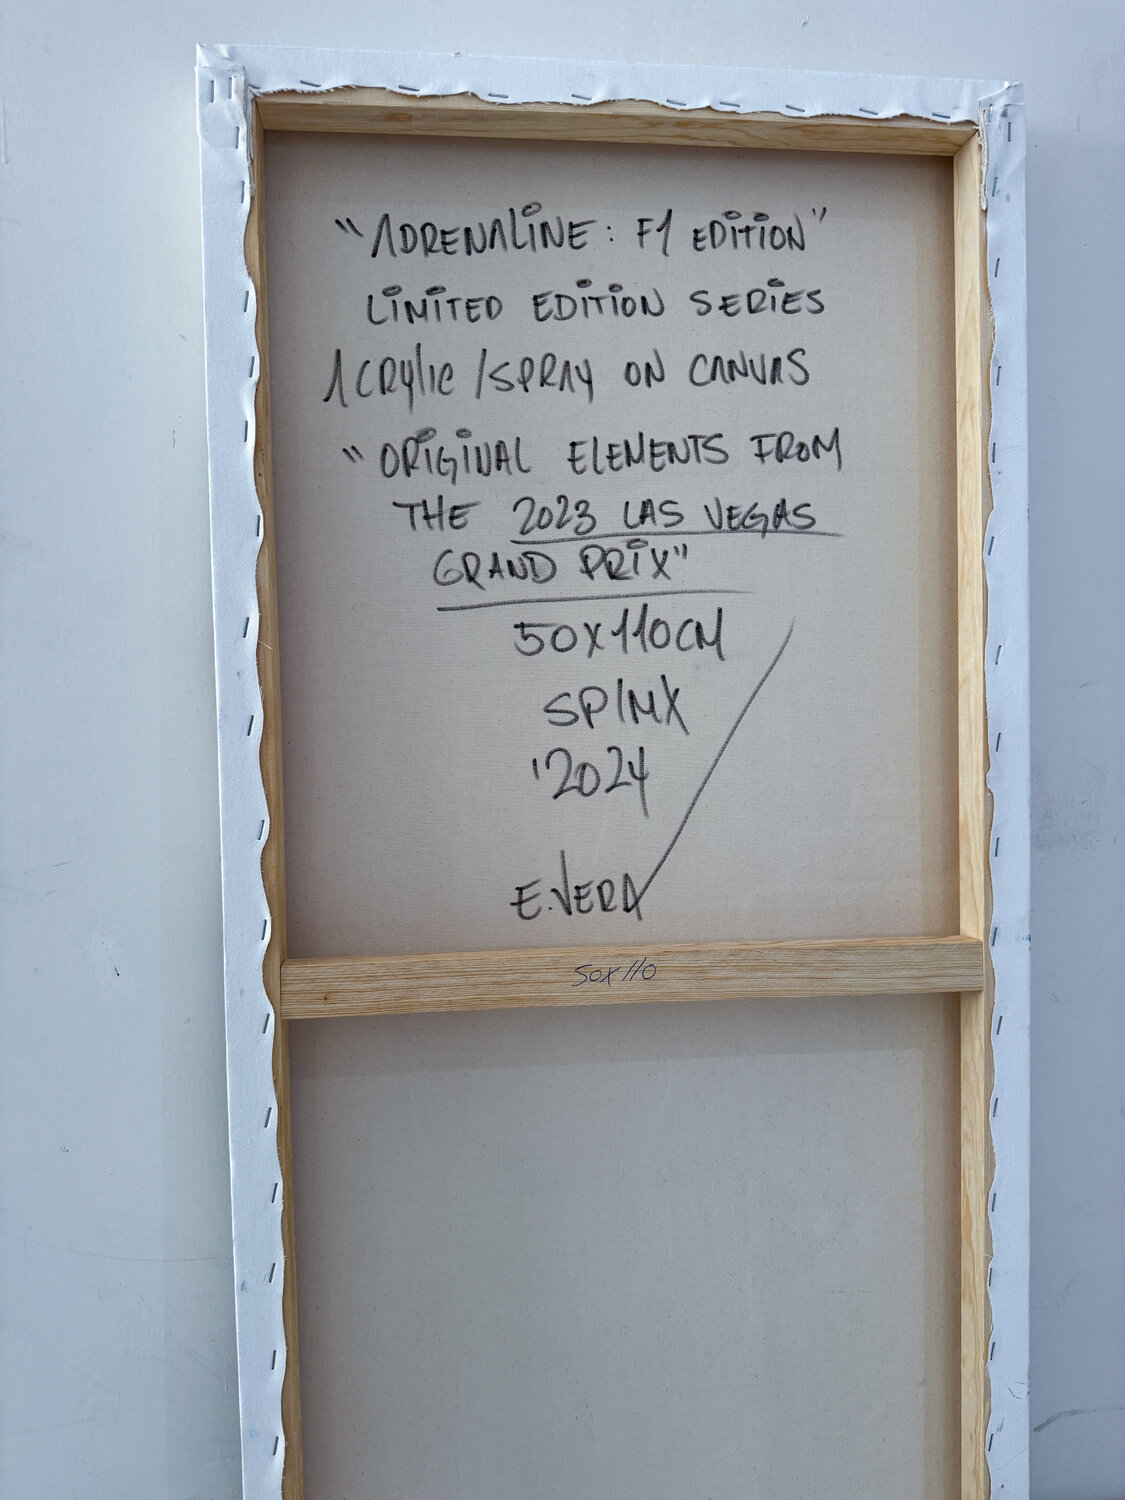 "ADRENALINE: F1 EDITION"
LIMITED EDITION SERIES
ACRYLIC/SPRAY ON CANVAS
"ORIGINAL ELEMENTS FROM
THE 2023 LAS VEGAS
GRAND PRIX"
50X110CM
SP/MX
'2024
E.VERA
50X110